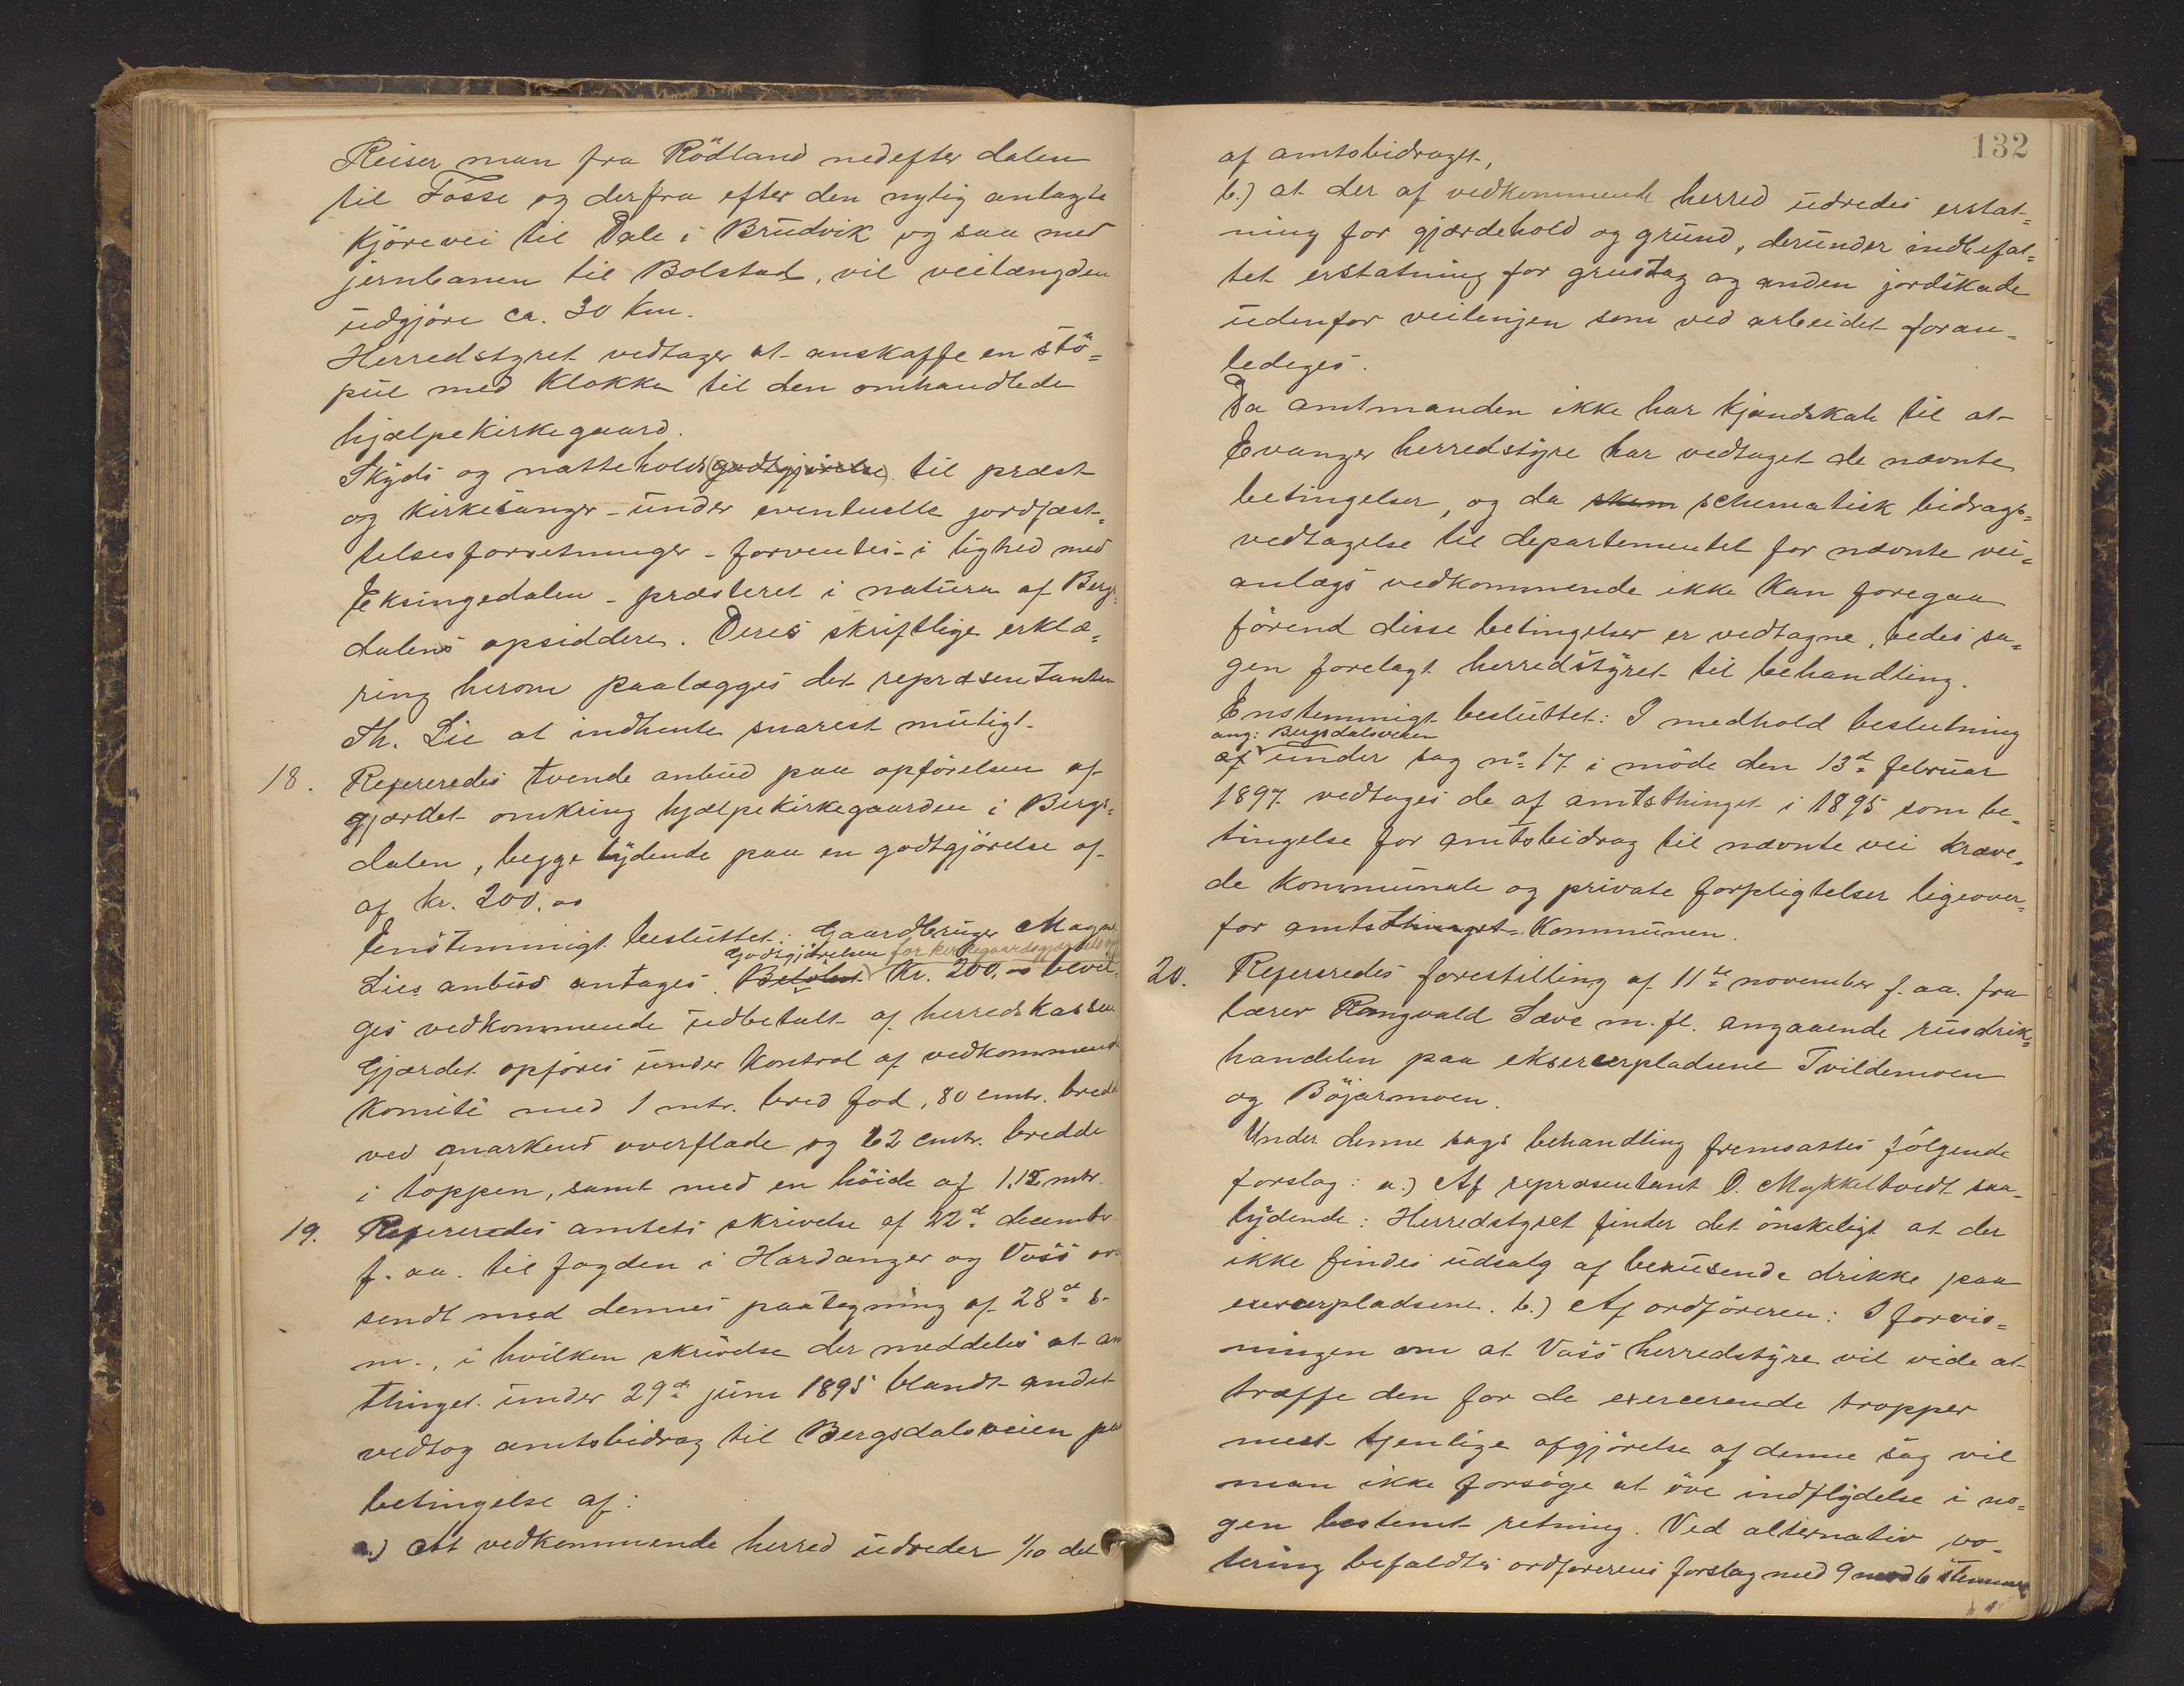 Reiser man fra Rödland nedefter dalen
til Fosse og derfra efter den nylig anlagte
kjörevei til Dale i Brudvik og saa med
jernbanen til Bolstad, vil veilængden
udgjöre ca. 30 km.
Herredstyret vedtager at anskaffe en stö=
pul med klokke til den omhandlede
hjælpekirkegaard.
Skyds og nattehold (godtgjörelse) til præst
og kirkesanger - under eventuelle jordfæst=
telsesforretninger - forventes - i lighed med
Eksingedalen - præsteret i natura af Bergs=
dalens opsiddere. Deres skriftlige erklæ=
ring herom paalægges det repræsentanten
Th. Lie at indhente snarest muligt.
18. Refereredes tvende anbud paa opförelsen af
gjærdet omkring hjælpekirkegaarden i Bergs=
dalen, begge lydende paa en godtgjörelse af
af kr. 200.00
Enstemmigt besluttet: Gaardbruger Magne
Godtgjörelsen for kirkegaardsgjærdets
Lies anbud antages. Betalst. Kr. 200.00 bevil=
ges vedkommende udbetalt af herredskassen
Gjærdet opföres under kontrol af vedkommende
komite med 1 mtr. bred fod, 80 cmtr. bredde
ved markens overflade og 62 cmtr. bredde
i toppen, samt med en höide af 1.15 mtr.
19. Refereredes amtets skrivelse af 22d december
f. aa. til fogden i Hardanger og Voss over
sendt med dennes paategning af 28d s.
m., i hvilken skrivelse der meddeles at amts
thinget under 29d juni 1895 blandt andet
vedtog amtsbidrag til Bergsdalsveien paa
betingelse af:
a.) At vedkommende herred udreder 1/10 del
132
af amtsbidraget,
b.) at der af vedkommende herred udredes erstat=
ning for gjærdehold og grund, derunder indbefat=
tet erstatning for grustag og anden jordskade
udenfor veilinjen som ved arbeidet foran=
lediges.
Da amtmanden ikke har kjendskab til at
Evanger herredstyre har vedtaget de nævnte
betingelser, og da skem schematisk bidrags=
vedtagelse til departementet for nævnte vei=
anlægs vedkommende ikke kan foregaa
förend disse betingelser er vedtagne, bedes sa=
gen forelagt herredstyret til behandling.
Enstemmigt besluttet: I medhold beslutning
ang: Bergsdalsveien
af under sag no 17 i möde den 13d februar
1897 vedtages de af amtsthinget i 1895 som be=
tingelse for amtsbidrag til nævnte vei kræve=
de kommunale og private forpligtelser ligeover=
for amtsthinget-kommunen.
20. Refereredes forestilling af 11te november f. aa. fra
lærer Rangvald Sæve m. fl. angaaende rusdrik=
handelen paa ekserserpladsene Tvildemoen
og Böjarmoen.
Under denne sags behandling fremsattes fölgende
forslag: a.) Af repræsentant O. Mykkeltvedt saa=
lydende: Herredstyret finder det önskeligt at der
ikke findes udsalg af berusende drikke paa
exercerpladsene. b.) Af ordföreren: I forvis=
ningen om at Voss herredstyre vil vide at
træffe den for de exercerende tropper
mest tjenlige afgjörelse af denne sag vil
man ikke forsöge at öve indflydelse i no=
gen bestemt retning. Ved alternativ vo=
tering bifaldtes ordförerens forslag med 9 mod 6 stemmer